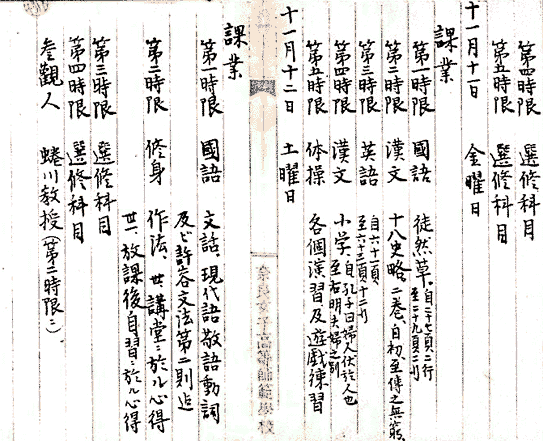 第四時限 選修科目
第五時限 選修科目
十一月十一日 金曜日
課業
第一時限 國語 徒然草、自二十七頁二行
至二十九頁二行
第二時限 漢文 十八史略二巻、自初至傳之無窮
第三時限 英語 自六十一頁
至六十三頁十二行
第四時限 漢文 小学、自孔子曰婦人伏於人也
至右明夫婦之別
第五時限 体操 各個演習及遊戯練習
十一月十二日 土曜日
奈良女子高等師範學校
課業
第一時限 國語 文話、現代語敬語動詞
及ビ許容文法第二則迄
第二時限 修身 作法、廿、講堂ニ於ル心得
廿一、放課後自習ニ於ル心得
第三時限 選修科目
第四時限 選修科目
参觀人 蜷川教授(第二時限ニ)